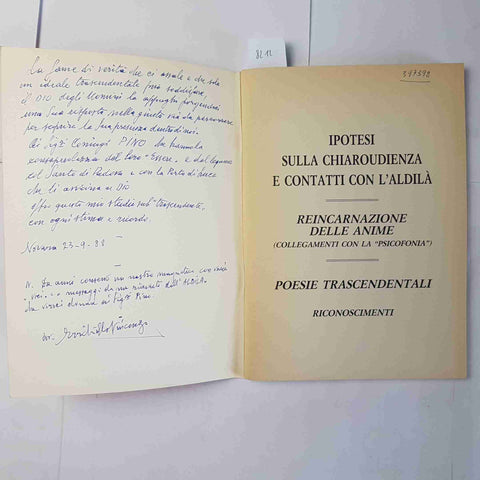 8212
La fame di verità che ci assale e che solo
un ideale trascendentale può soddisfare,
il DIO degli Uomini la appaga porgendoci
una Sua risposta nella giusta via da percorrere
per seguire la Sua presenza dentro di noi.
Ai Sigg. Coniugi PINO che hanno la
consapevolezza del loro Essere e dal legame
al Santo di Padova e con la Porta di luce
che li avvicina a DIO
offro questo mio studio sul trascendente,
con ogni stima e ricordo.
Novara 23-9-88
N. Da anni conservo un nastro magnetico con varie
voci e messaggi da me ricevuti dell'ALDILÀ.
Sigg. Pino
397392
IPOTESI
SULLA CHIAROUDIENZA
E CONTATTI CON L'ALDILÀ
REINCARNAZIONE
DELLE ANIME
(COLLEGAMENTI CON LA "PSICOFONIA")
POESIE TRASCENDENTALI
RICONOSCIMENTI